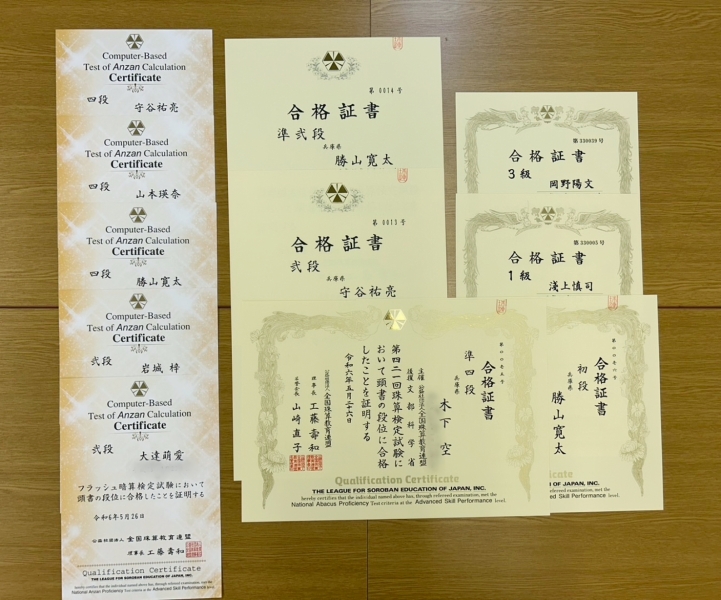 Computer-Based
Test of Anzan Calculation
Certificate
四段
守谷祐亮
Computer-Based
Test of Anzan Calculation
Certificate
四段
山本瑛奈
Computer-Based
Test of Anzan Calculation
Certificate
四段
勝山寛太
Computer-Based
Test of Anzan Calculation
Certificate
弐段
岩城 梓
Computer-Based
Test of Anzan Calculation
Certificate
弐段
大達萌愛
フラッシュ暗算検定試験において
頭書の段位に合格したことを証明する
令和6年5月26日
公益社団法人 全国珠算教育連盟
理事長 工藤壽和
Qualification Certificate
THE LEAGUE FOR SOROBAN EDUCATION OF JAPAN, INC.
hereby certifies that the individual named above has, through refereed examination, met the
National Anzan Proficiency Test criteria at the Advanced Skill Performance level.
第 0014 号
合格証書
準弐段
兵庫県
勝山寛太
第 0013 号
合格証書
弐段
兵庫県
守谷祐亮
第 330039 号
合格証書
3級
岡野陽文
第 330005 号
合格証書
1級
淺上慎司
合格証書
準四段
兵庫県
木下 空
主催 公益社団法人全国珠算教育連盟
後援 文部科学省
第四二一回珠算検定試験に
おいて頭書の段位に合格
したことを証明する
令和六年五月二十六日
公益社団法人 全国珠算教育連盟
理事長 工藤壽和
山崎直子
Qualification Certificate
THE LEAGUE FOR SOROBAN EDUCATION OF JAPAN, INC.
hereby certifies that the individual named above has, through refereed examination, met the
National Abacus Proficiency Test criteria at the Advanced Skill Performance level.
合格証書
初段
兵庫県
勝山寛太
Certificate
OF JAPAN, INC.
refereed examination, met the
Advanced Skill Performance level.